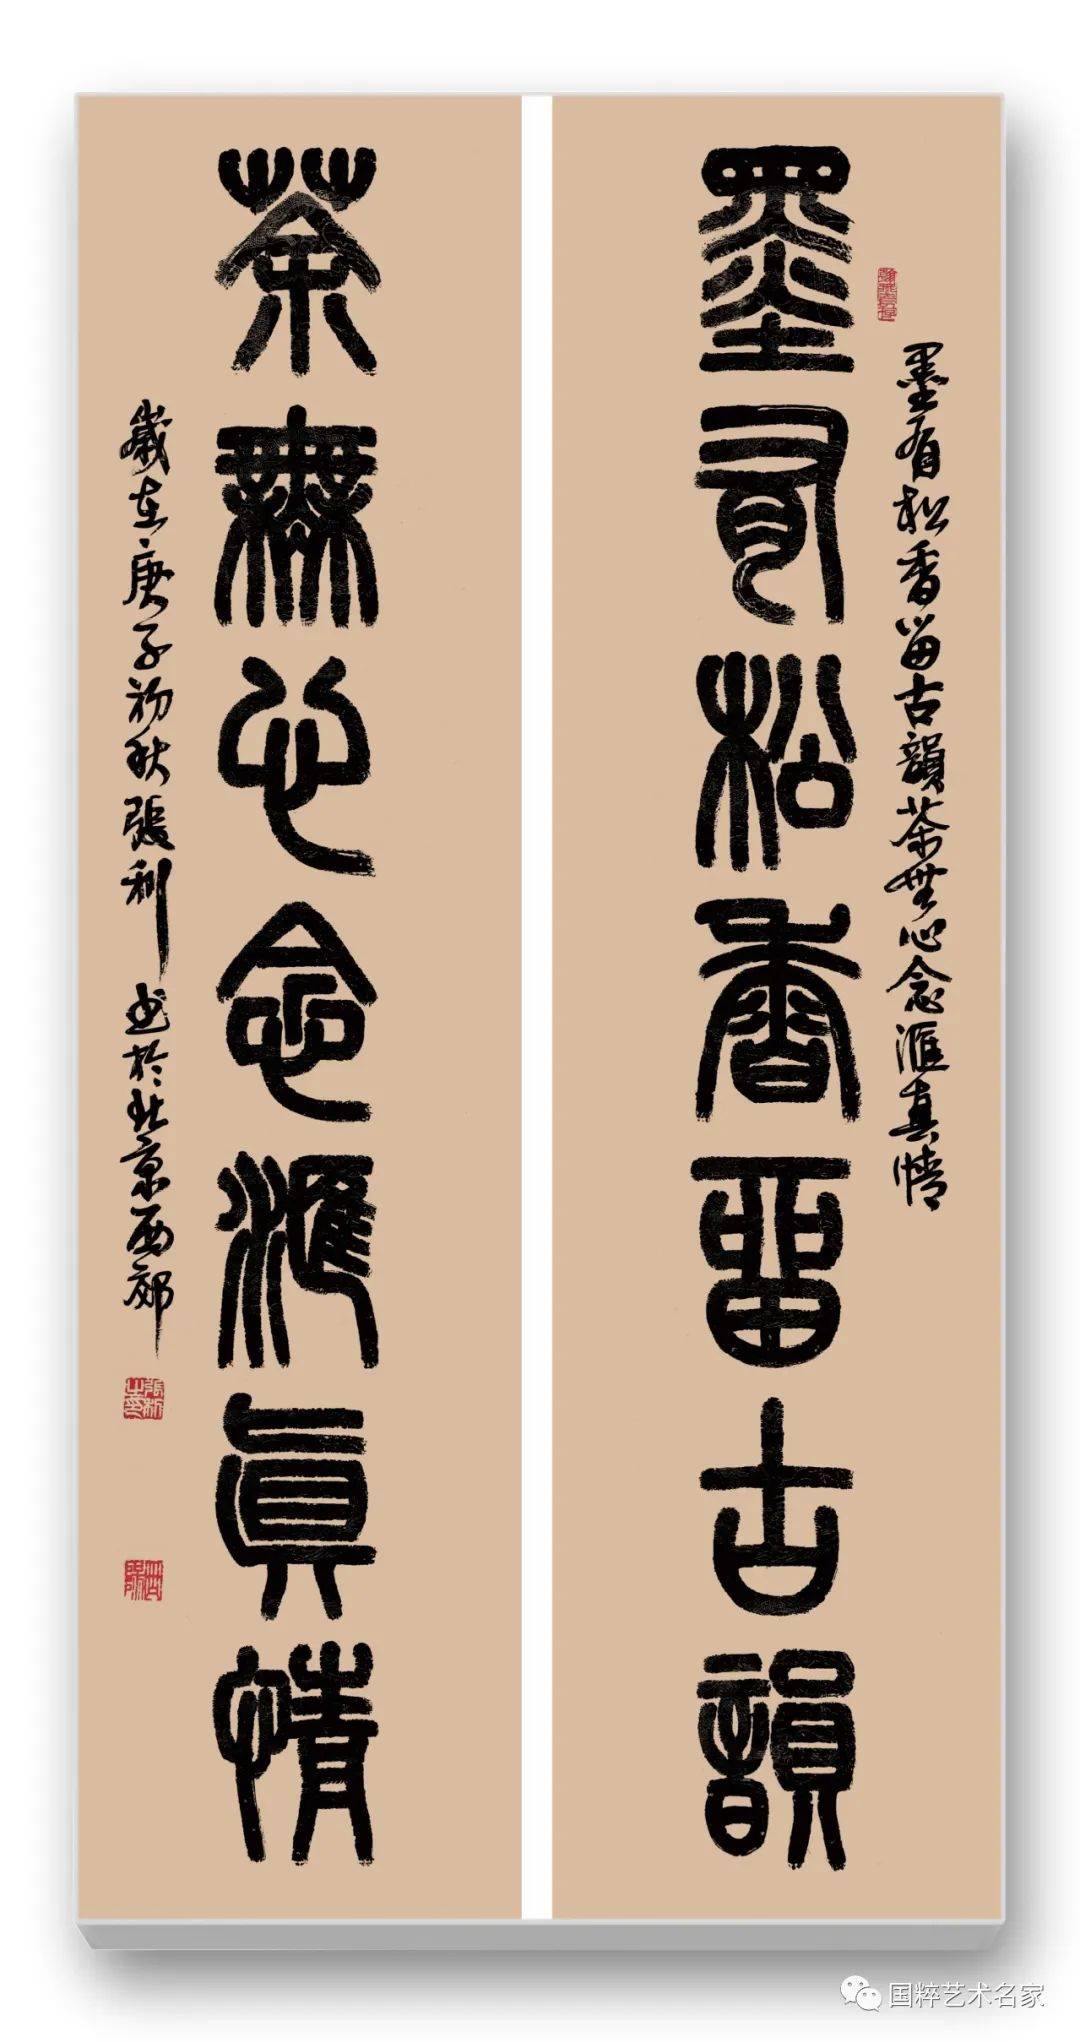 墨有松香留古韻
墨有松香留古韻茶無心念滙真情
茶無心念滙眞情
歲在庚子初秋張利書於北京西郊
国粹艺术名家